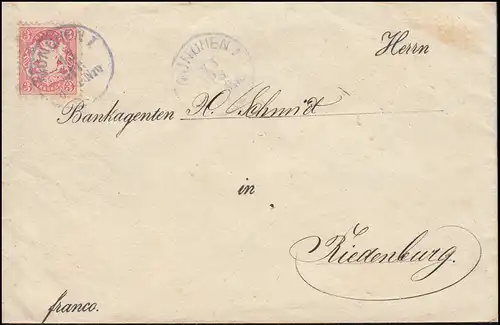 MÜNCHEN I
MÜNCHEN I
Herrn
Bankagenten X. Schmidt
in
Riedenburg.
franco.